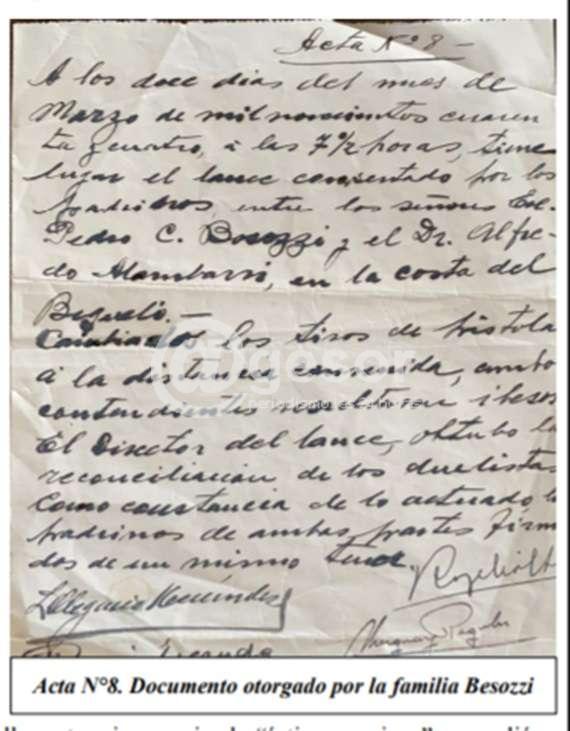 Acta Nº 8 -
A los doce dias del mes de
Marzo de mil novecientos cuaren
ta y cuatro, a las 7 1/2 horas, tiene
lugar el lance concertado por los
padrinos entre los señores
Pedro C. Besozzi y el Dr. Alfre-
do Alambarri, en la costa del
Bequeló. -
Cambiados los tiros de pistola
á la distancia convenida, ambos
contendientes resultaron ilesos
El Director del lance, obtubo la
reconciliación de los duelistas
Como constancia de lo actuado, lo
padrinos de ambas partes firm
dos de un mismo tenor.
gesor
periodismo
Acta N°8. Documento otorgado por la familia Besozzi